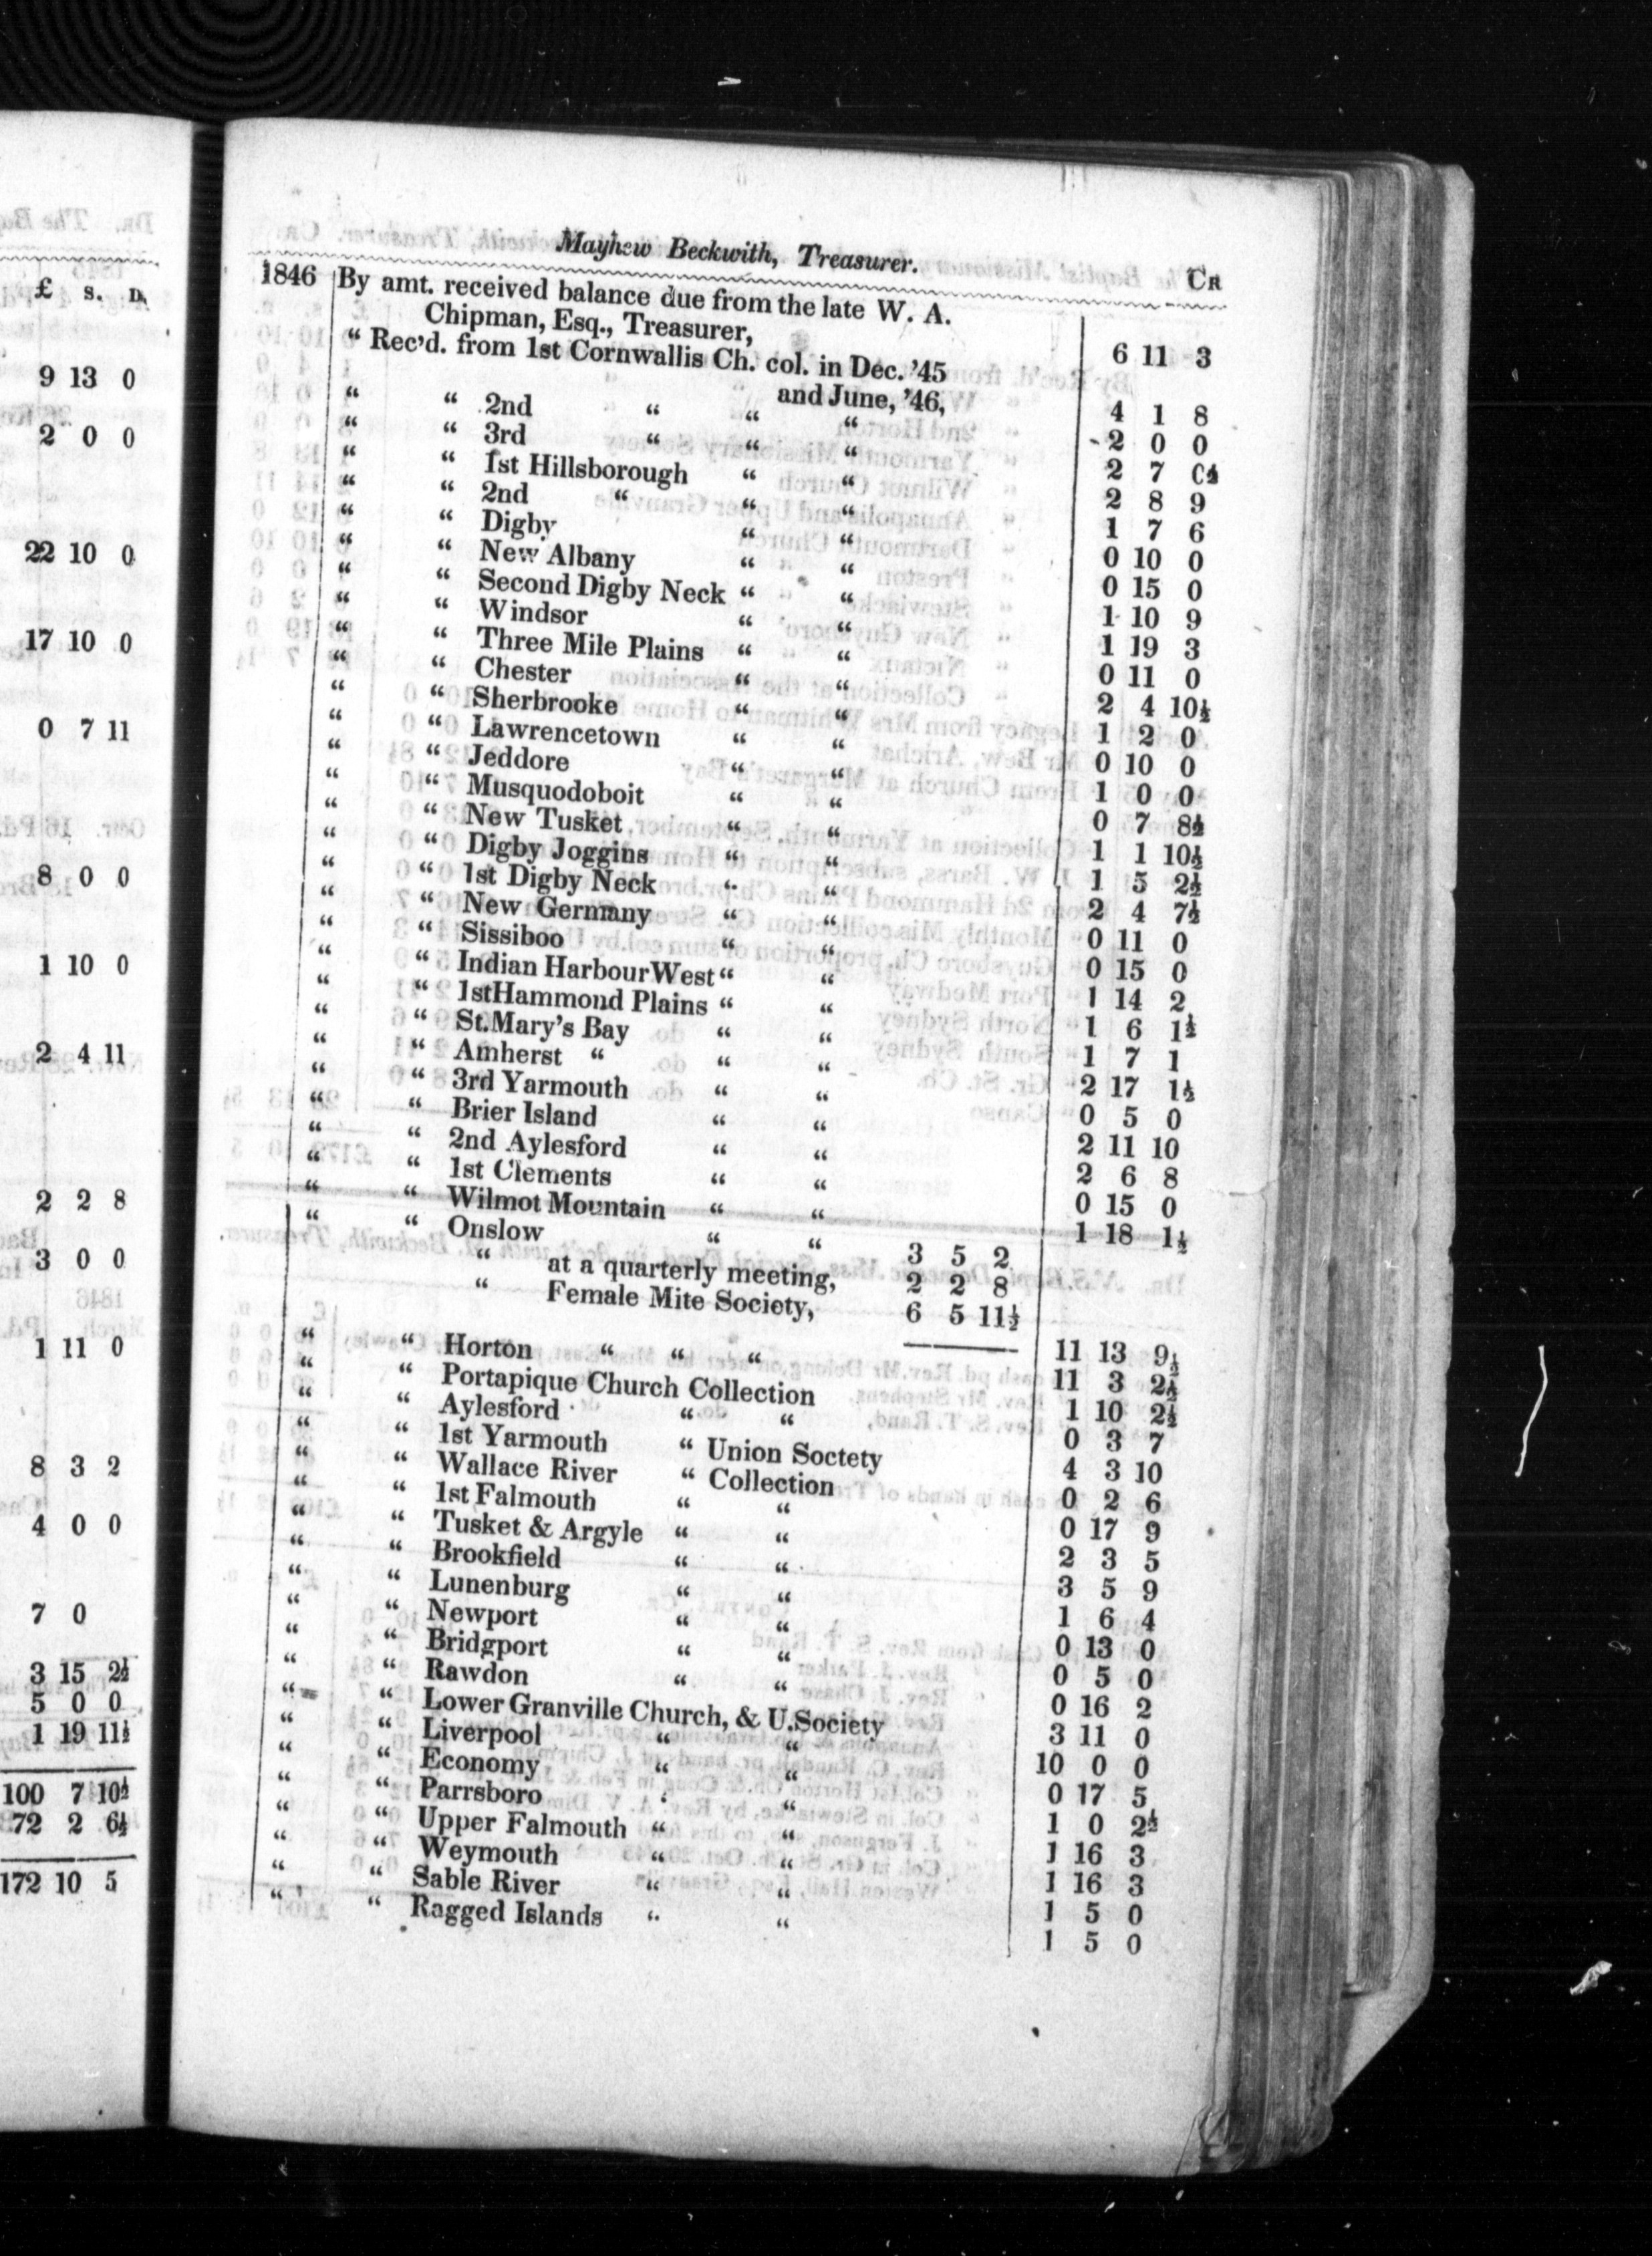 £ s. D.
9 13 0
2 0 0
22 10 0
17 10 0
0 7 11
8 0 0
1 10 0
2 4 11
2 2 8
3 0 0
1 11 0
8 3 2
4 0 0
7 0
3 15 2½
5 0 0
1 19 11½
100 7 10½
72 2 6½
172 10 5
Mayhew Beckwith, Treasurer. CR
1846 By amt. received balance due from the late W. A.
Chipman, Esq., Treasurer, 6 11 3
“ Rec’d. from 1st Cornwallis Ch. col. in Dec. ’45
and June, ’46, 4 1 8
“ “ 2nd “ “ “ 2 0 0
“ “ 3rd “ “ “ 2 7 0½
“ “ 1st Hillsborough “ “ 2 8 9
“ “ 2nd “ “ “ 1 7 6
“ “ Digby “ “ 0 10 0
“ “ New Albany “ “ 0 15 0
“ “ Second Digby Neck “ “ 1 10 9
“ “ Windsor “ “ 1 19 3
“ “ Three Mile Plains “ “ 0 11 0
“ “ Chester “ “ 2 4 10½
“ “ Sherbrooke “ “ 1 2 0
“ “ Lawrencetown “ “ 0 10 0
“ “ Jeddore “ “ 1 0 0
“ “ Musquodoboit “ “ 0 7 8½
“ “ New Tusket “ “ 1 1 10½
“ “ Digby Joggins “ “ 1 5 2½
“ “ 1st Digby Neck “ “ 2 4 7½
“ “ New Germany “ “ 0 11 0
“ “ Sissiboo “ “ 0 15 0
“ “ Indian Harbour West “ “ 1 14 2
“ “ 1st Hammond Plains “ “ 1 6 1½
“ “ St. Mary’s Bay “ “ 1 7 1
“ “ Amherst “ “ “ 2 17 1½
“ “ 3rd Yarmouth “ “ 0 5 0
“ “ Brier Island “ “ 2 11 10
“ “ 2nd Aylesford “ “ 2 6 8
“ “ 1st Clements “ “ 0 15 0
“ “ Wilmot Mountain “ “ 1 18 1½
“ “ Onslow “ “ 3 5 2
“ at a quarterly meeting, 2 2 8
“ Female Mite Society, 6 5 11½
11 13 9½
“ “ Horton “ “ “ 11 3 2½
“ “ Portapique Church Collection 1 10 2½
“ “ Aylesford “ “ 0 3 7
“ “ 1st Yarmouth “ Union Soctety 4 3 10
“ “ Wallace River “ Collection 0 2 6
“ “ 1st Falmouth “ “ 0 17 9
“ “ Tusket & Argyle “ “ 2 3 5
“ “ Brookfield “ “ 3 5 9
“ “ Lunenburg “ “ 1 6 4
“ “ Newport “ “ 0 13 0
“ “ Bridgport “ “ 0 5 0
“ “ Rawdon “ “ 0 16 2
“ “ Lower Granville Church, & U. Society 3 11 0
“ “ Liverpool “ “ 10 0 0
“ “ Economy “ “ 0 17 5
“ “ Parrsboro “ “ 1 0 2½
“ “ Upper Falmouth “ “ 1 16 3
“ “ Weymouth “ “ 1 16 3
“ “ Sable River “ “ 1 5 0
“ “ Ragged Islands “ “ 1 5 0